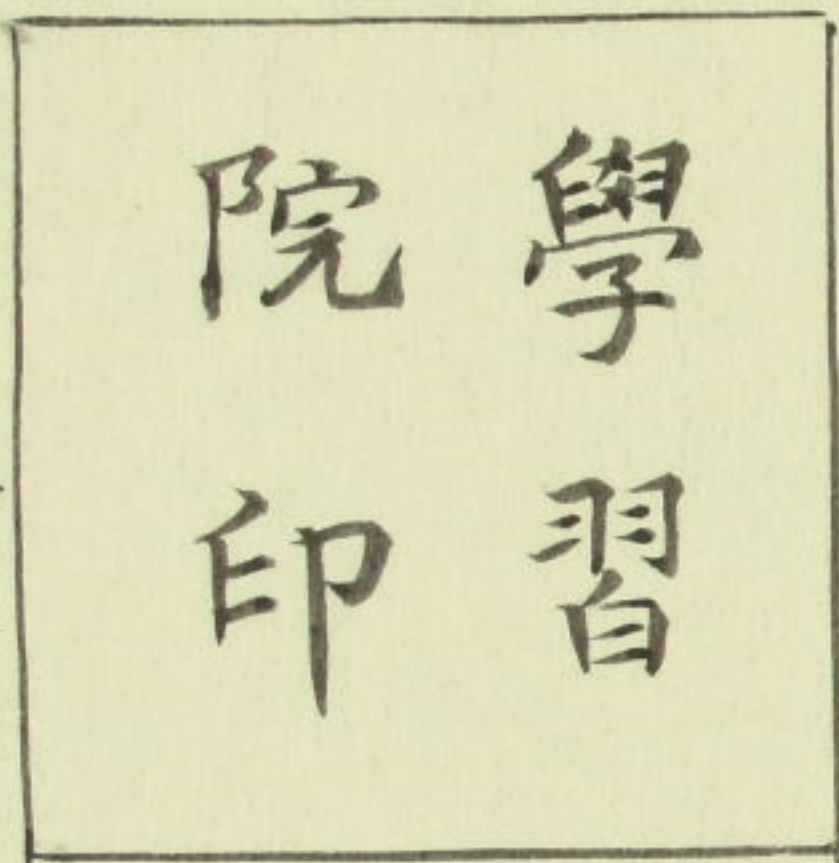 學習
院印